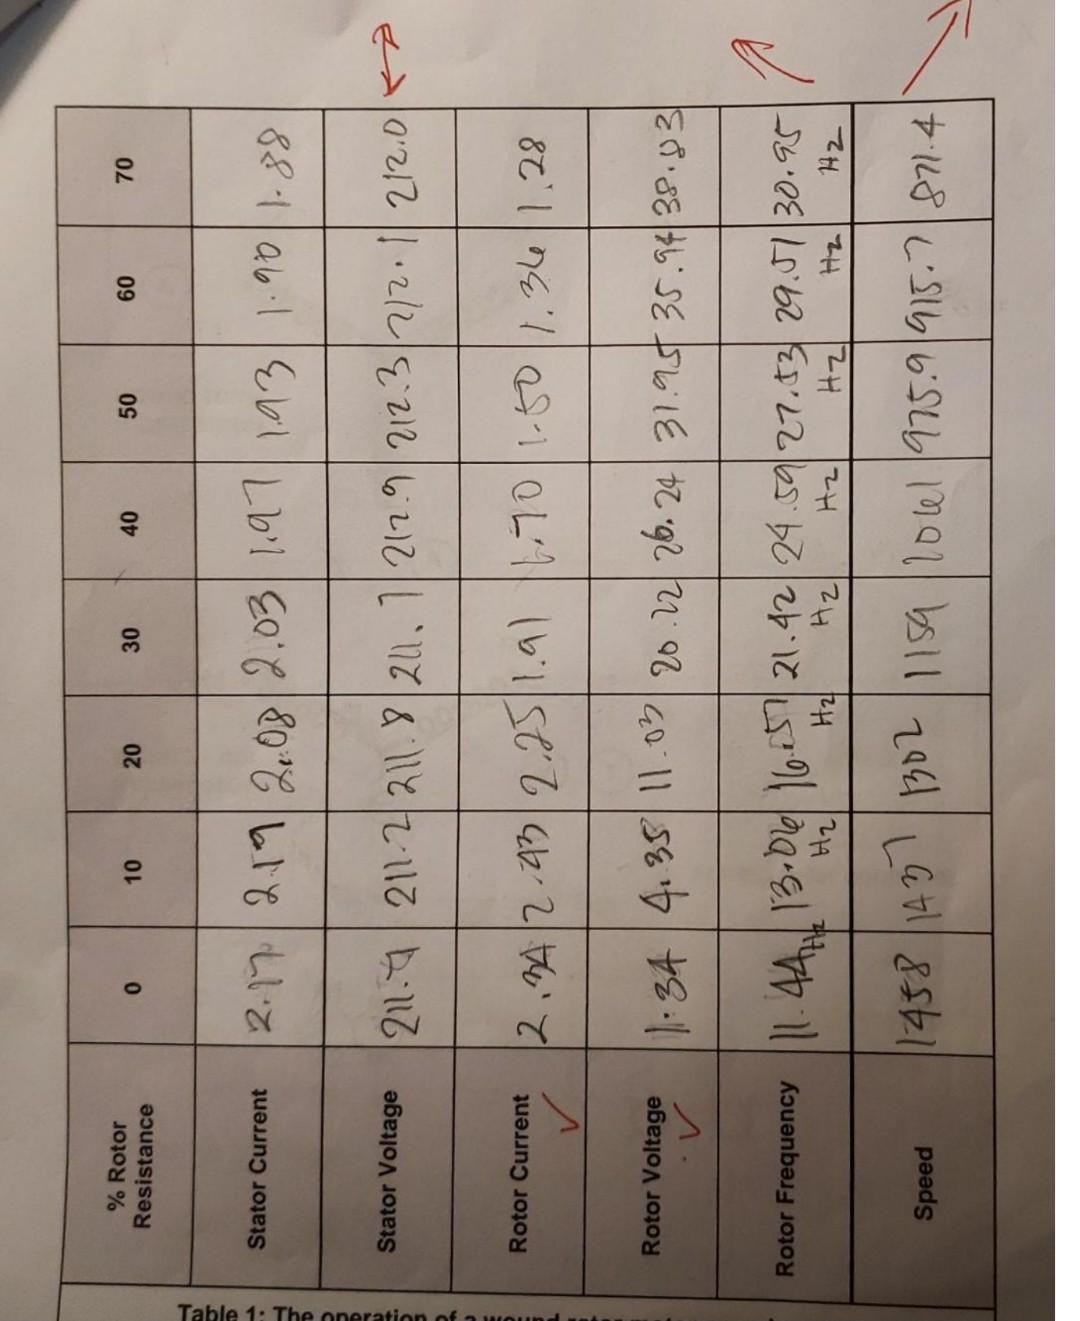 % Rotor Resistance 0 10 20 30 40 50 60 70
Stator Current 2.17 2.19 2.08 2.03 1.97 1.93 1.90 1.88
Stator Voltage 211.2 211.8 211.1 212.9 212.3 212.1 212.0
Rotor Current 2.34 2.43 2.25 1.91 1.70 1.50 1.36 1.28
Rotor Voltage 11.34 4.35 11.03 20.22 26.24 31.95 35.94 38.83
Rotor Frequency 11.44 Hz 13.06 Hz 16.57 Hz 21.42 Hz 24.59 Hz 27.53 Hz 29.51 Hz 30.95 Hz
Speed 1458 1437 1302 1159 1061 975.9 915.7 871.4
Table 1: The operation of a wound rotor